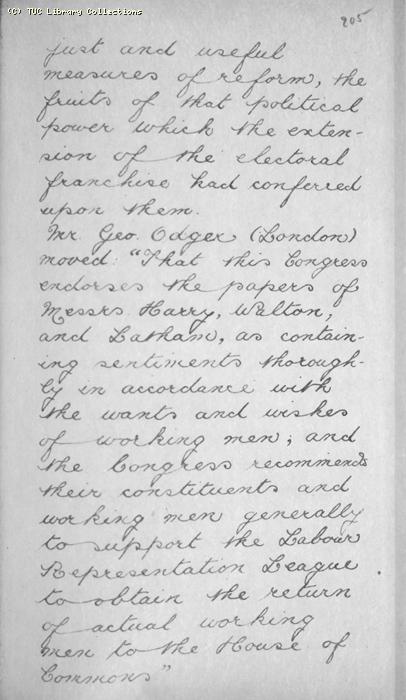 (C) TUC Library Collections
205
just and useful
measures of reform, the
fruits of that political
power which the exten-
sion of the electoral
franchise had conferred
upon them.
Mr. Geo. Odger (London)
moved: "That this Congress
endorses the papers of
Messrs. Harry, Walton,
and Latham, as contain-
ing sentiments thorough-
ly in accordance with
the wants and wishes
of working men; and
the Congress recommends
their constituents and
working men generally
to support the Labour
Representation League
to obtain the return
of actual working
men to the House of
Commons"